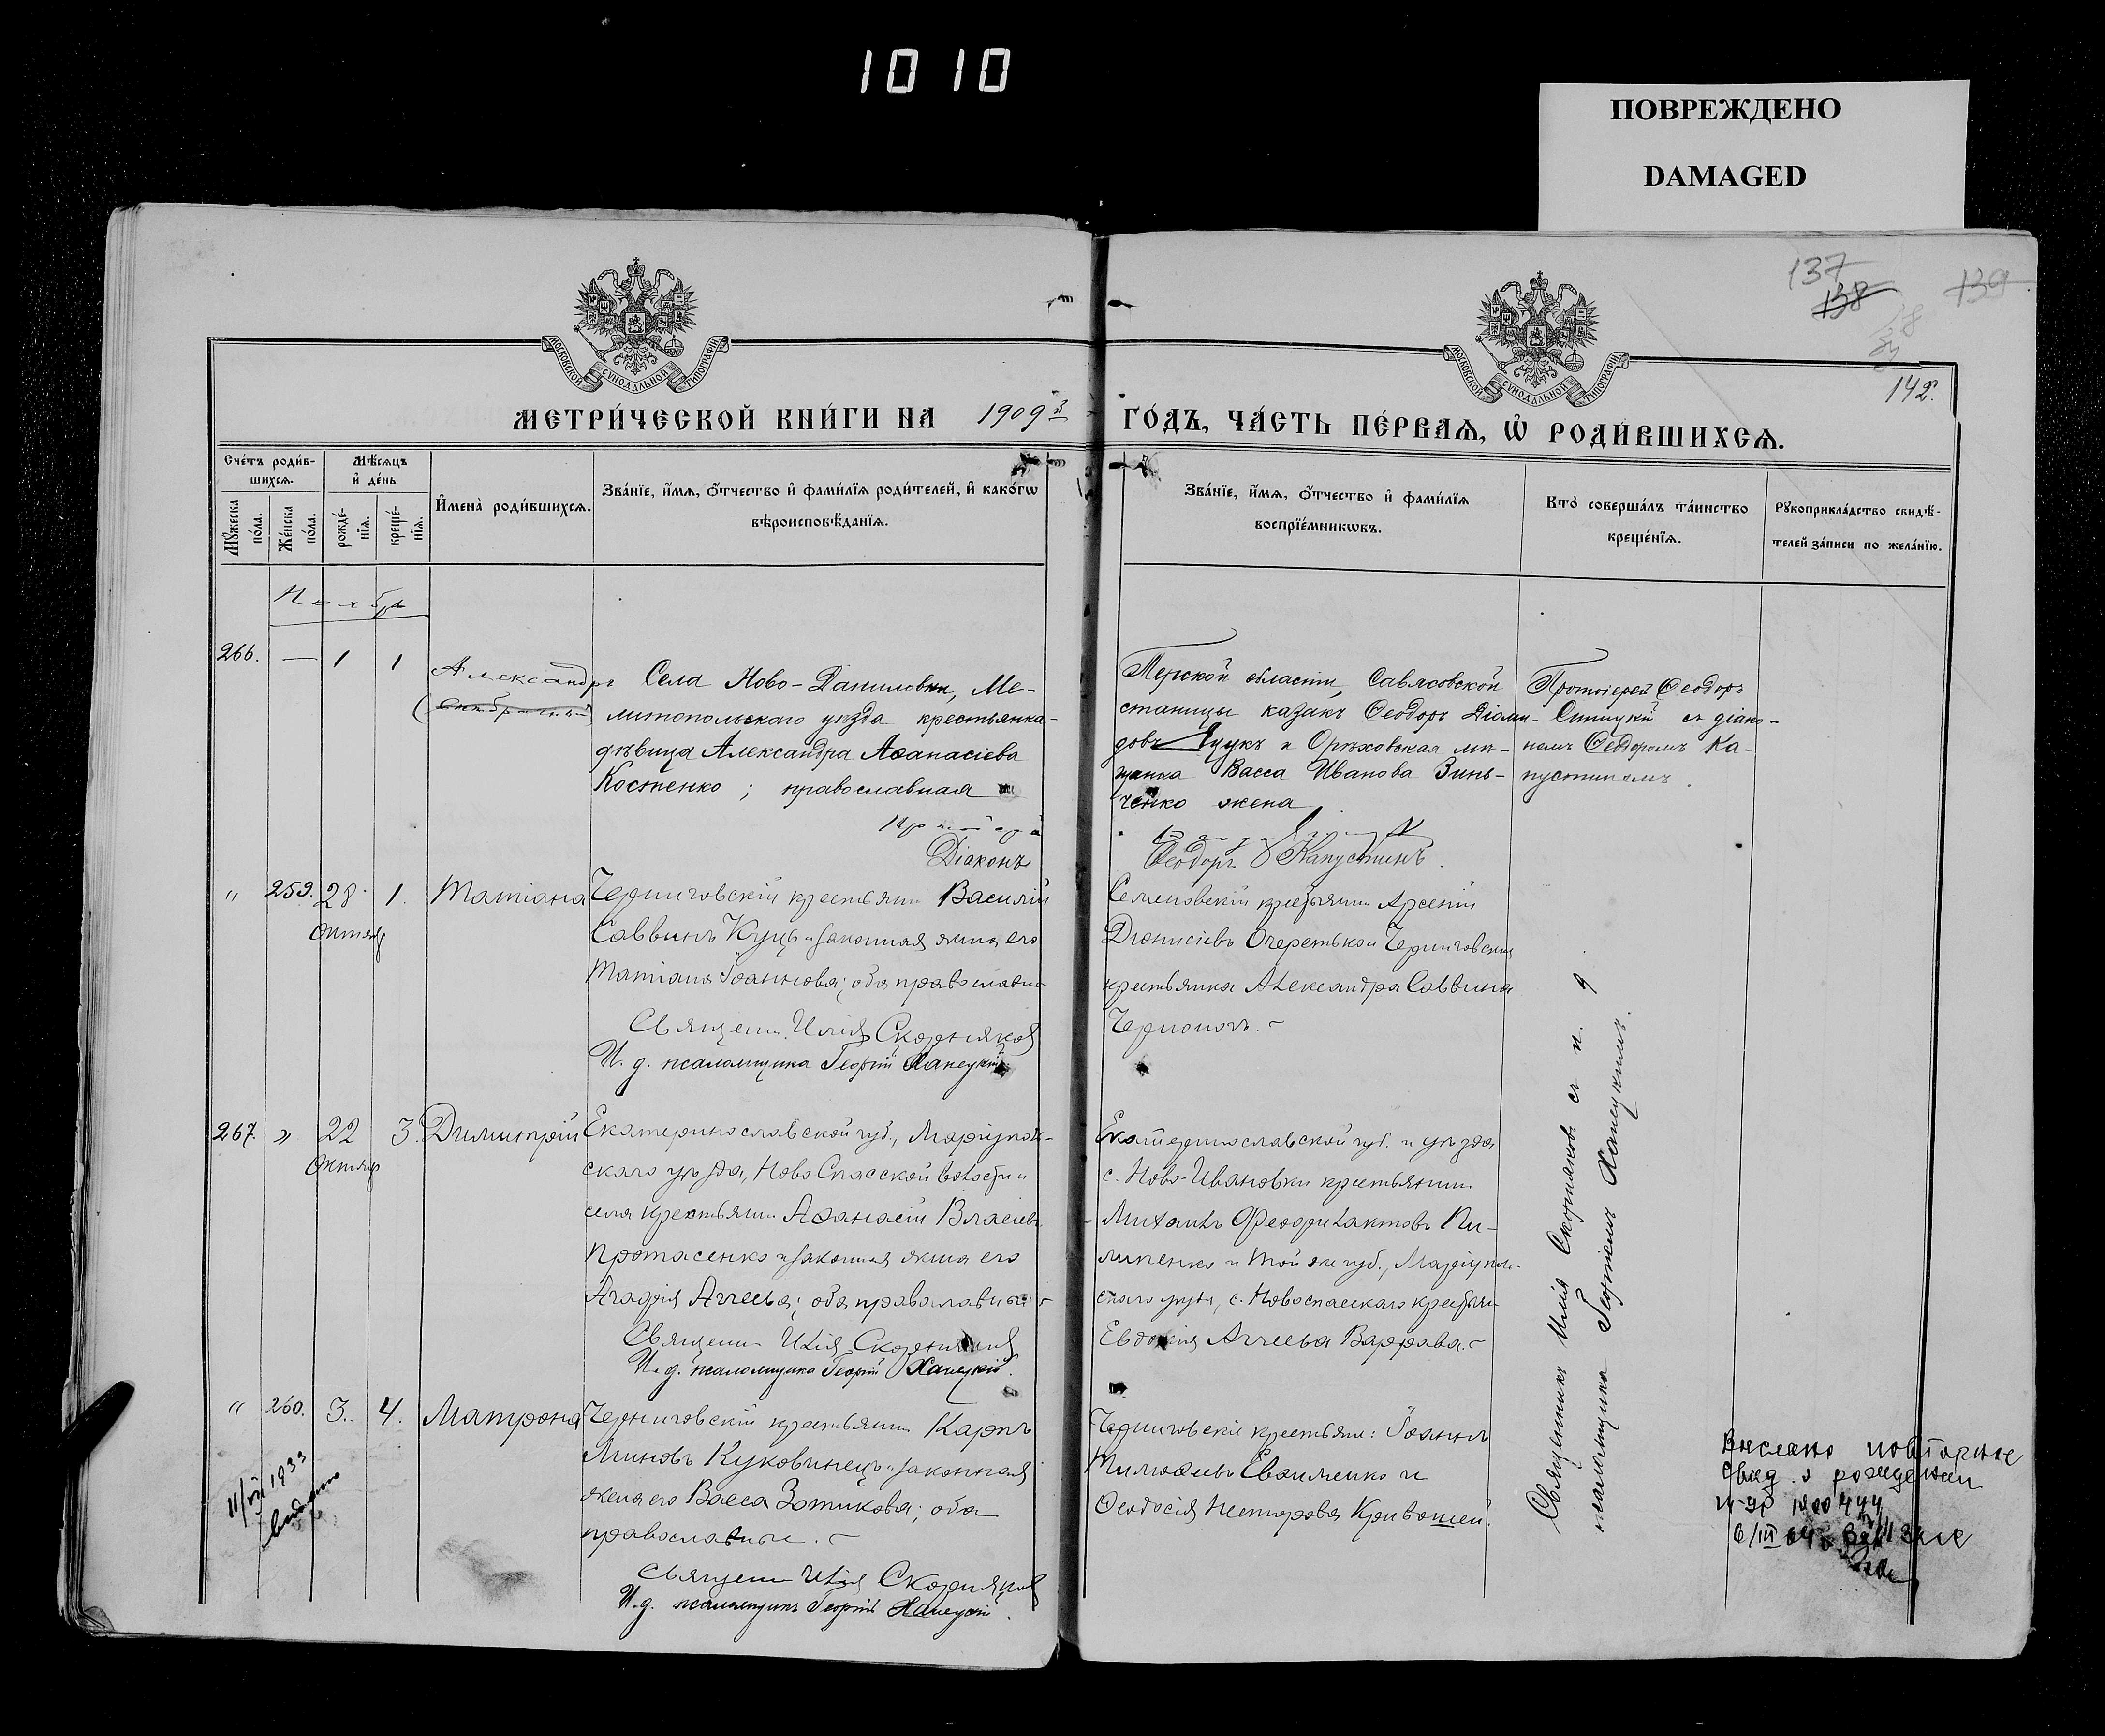 1010
ПОВРЕЖДЕНО
DAMAGED
137
138
139
142.
МОСКОВСКОЙ СУНОДАЛЬНОЙ ТИПОГРАФІИ
МОСКОВСКОЙ СУНОДАЛЬНОЙ ТИПОГРАФІИ
МЕТРИ́ЧЕСКОЙ КНИ́ГИ НА 1909й ГО́ДЪ, ЧА́СТЬ ПЕ́РВАѦ, Ѡ҆ РОДИ́ВШИХСѦ.
Сче́тъ роди́в-
шихсѧ.
Мꙋ́жеска по́ла.
Же́нска по́ла.
Мѣ́сѧцъ
и҆ де́нь
рожде́-
нїѧ.
креще́-
нїѧ.
И҆мена̀ роди́вшихсѧ.
Зва́нїе, и҆́мѧ, ѻ҆́тчество и҆ фами́лїѧ роди́телей, и҆ како́гѡ
вѣроисповѣ́данїѧ.
Зва́нїе, и҆́мѧ, ѻ҆́тчество и҆ фами́лїѧ
воспрїе́мникѡвъ.
Кто̀ соверша́лъ та́инство
креще́нїѧ.
Рꙋкоприкла́дство свидѣ́-
телей за́писи по жела́нїю.
Ноябрь
266. — 1 1 Александръ
Села Ново-Даниловки, Ме-
литопольскаго уѣзда крестьянка-
дѣвица Александра Аѳанасіева
Костенко; православная
Діаконъ
Терской области, Савлсовской
станицы казакъ Ѳеодоръ Діоми-
довъ и Орѣховская мѣ-
щанка Васса Иванова Зинь-
ченко жена
Ѳеодоръ Капустинъ.
Протоіерей Ѳеодоръ
съ діако-
номъ Ѳеодоромъ Ка-
пустинымъ.
" 259. 28 1. Татіана
Октяб
Черниговскій крестьянинъ Василій
Саввинъ Куцъ и законная жена его
Татіана Іоаннова; оба православн
Священ. Илія Скорняковъ
И. д. псаломщика Георгій Ханецкій
Семеновскій крестьянинъ Арсеній
Діонисіевъ Очеретько и Черниговская
крестьянка Александра Саввина
267. " 22 3. Димитрій
Октяб
Екатеринославской губ., Маріуполь-
скаго уѣзда, НовоСпасской волости и
села крестьянинъ Аѳанасій Власіевъ
Протасенко и законная жена его
Агафія Аггеева; оба православные
Священ. Илія Скорняковъ
И. д. псаломщика Георгій Ханецкій.
Екатеринославской губ. и уѣзда
с. Ново-Ивановки крестьянинъ
Михаилъ Феофилактовъ Пи-
липенко и той же губ., Маріуполь-
скаго уѣзда, с. Новоспасскаго крестьян
Евдокія Аггеева Варрава.
" 260. 3. 4. Матрона
Черниговскій крестьянинъ Карпъ
Миновъ Куковинецъ и законная
жена его Васса Зотикова; оба
православные.
Священ. Илія Скорняковъ
И. д. псаломщика Георгій Ханецкій.
Черниговскіе крестьяне: Іоаннъ
Тимоѳеевъ Евфименко и
Ѳеодосія Несторова Кривошей.
Священникъ Илія Скорняковъ съ и. д.
псаломщика Георгіемъ Ханецкимъ.
11/VII 1933
Выслано повторное
свид. о рождении